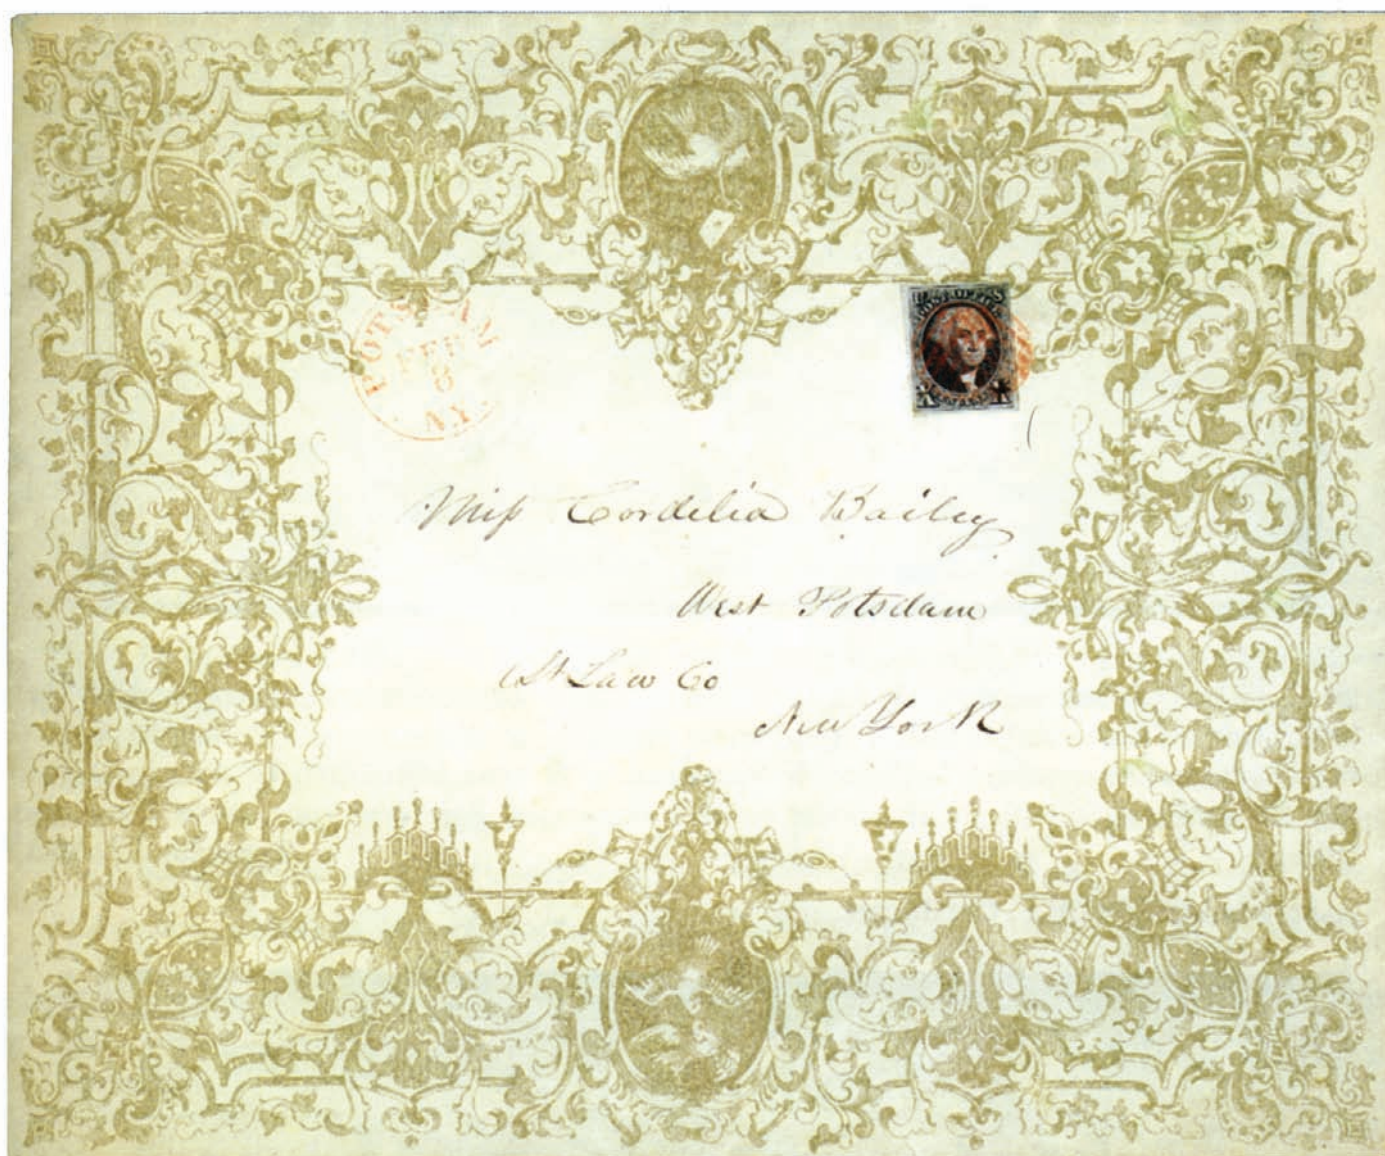 POTSDAM
FEB
8
N.Y.
U S
POST OFFICE
X X
Miss Cordelia Bailey
West Potsdam
St Law Co
New York